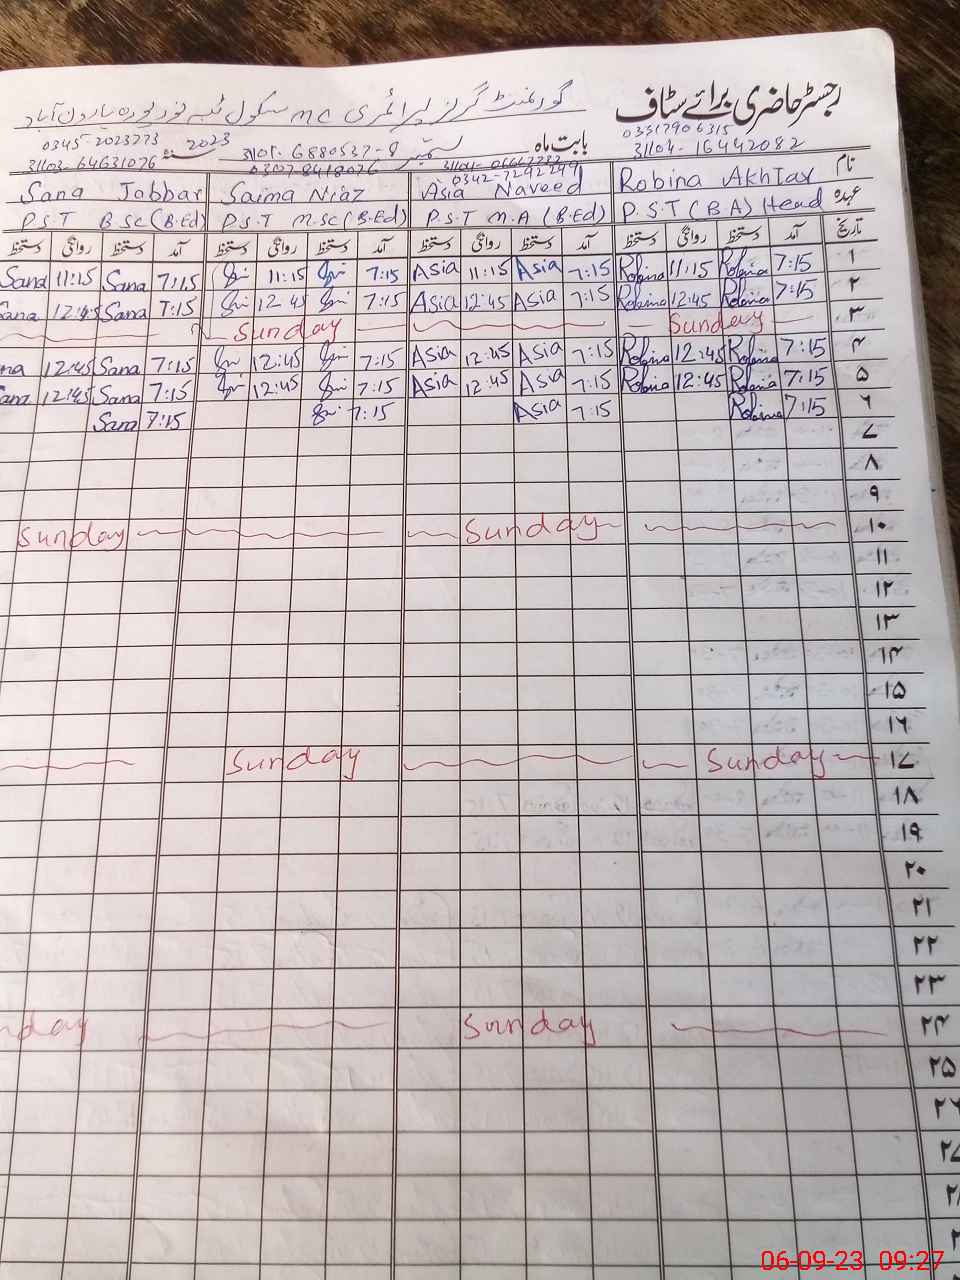 رجسٹر حاضری برائے سٹاف
گورنمنٹ گرلز پرائمری سکول
03317906315
بابت ماہ ستمبر سنہ 2023
0345-2023773
31104-16442082
31103-64631076
03078418076
0342-7292249
نام Robina Akhtar Asia Naveed Saima Niaz Sana Jabbar
عہدہ P.S.T (BA) Head P.S.T M.A (B.Ed) P.S.T M.Sc (B.Ed) P.S.T B.Sc (B.Ed)
تاریخ آمد دستخط روانگی دستخط آمد دستخط روانگی دستخط آمد دستخط روانگی دستخط آمد دستخط روانگی دستخط
۱ 7:15 Robina 11:15 Robina 7:15 Asia 11:15 Asia 7:15 11:15 7:15 Sana 11:15 Sana
۲ 7:15 Robina 12:45 Robina 7:15 Asia 12:45 Asia 7:15 12:45 7:15 Sana 12:45 Sana
۳ Sunday Sunday
۴ 7:15 Robina 12:45 Robina 7:15 Asia 12:45 Asia 7:15 12:45 7:15 Sana 12:45 na
۵ 7:15 Robina 12:45 Robina 7:15 Asia 12:45 Asia 7:15 12:45 7:15 Sana 12:45 ana
۶ 7:15 Robina 7:15 Asia 7:15 7:15 Sana
۷
۸
۹
۱۰ Sunday Sunday
۱۱
۱۲
۱۳
۱۴
۱۵
۱۶
۱۷ Sunday Sunday
۱۸
۱۹
۲۰
۲۱
۲۲
۲۳
۲۴ Sunday nday
۲۵
۲۶
06-09-23 09:27